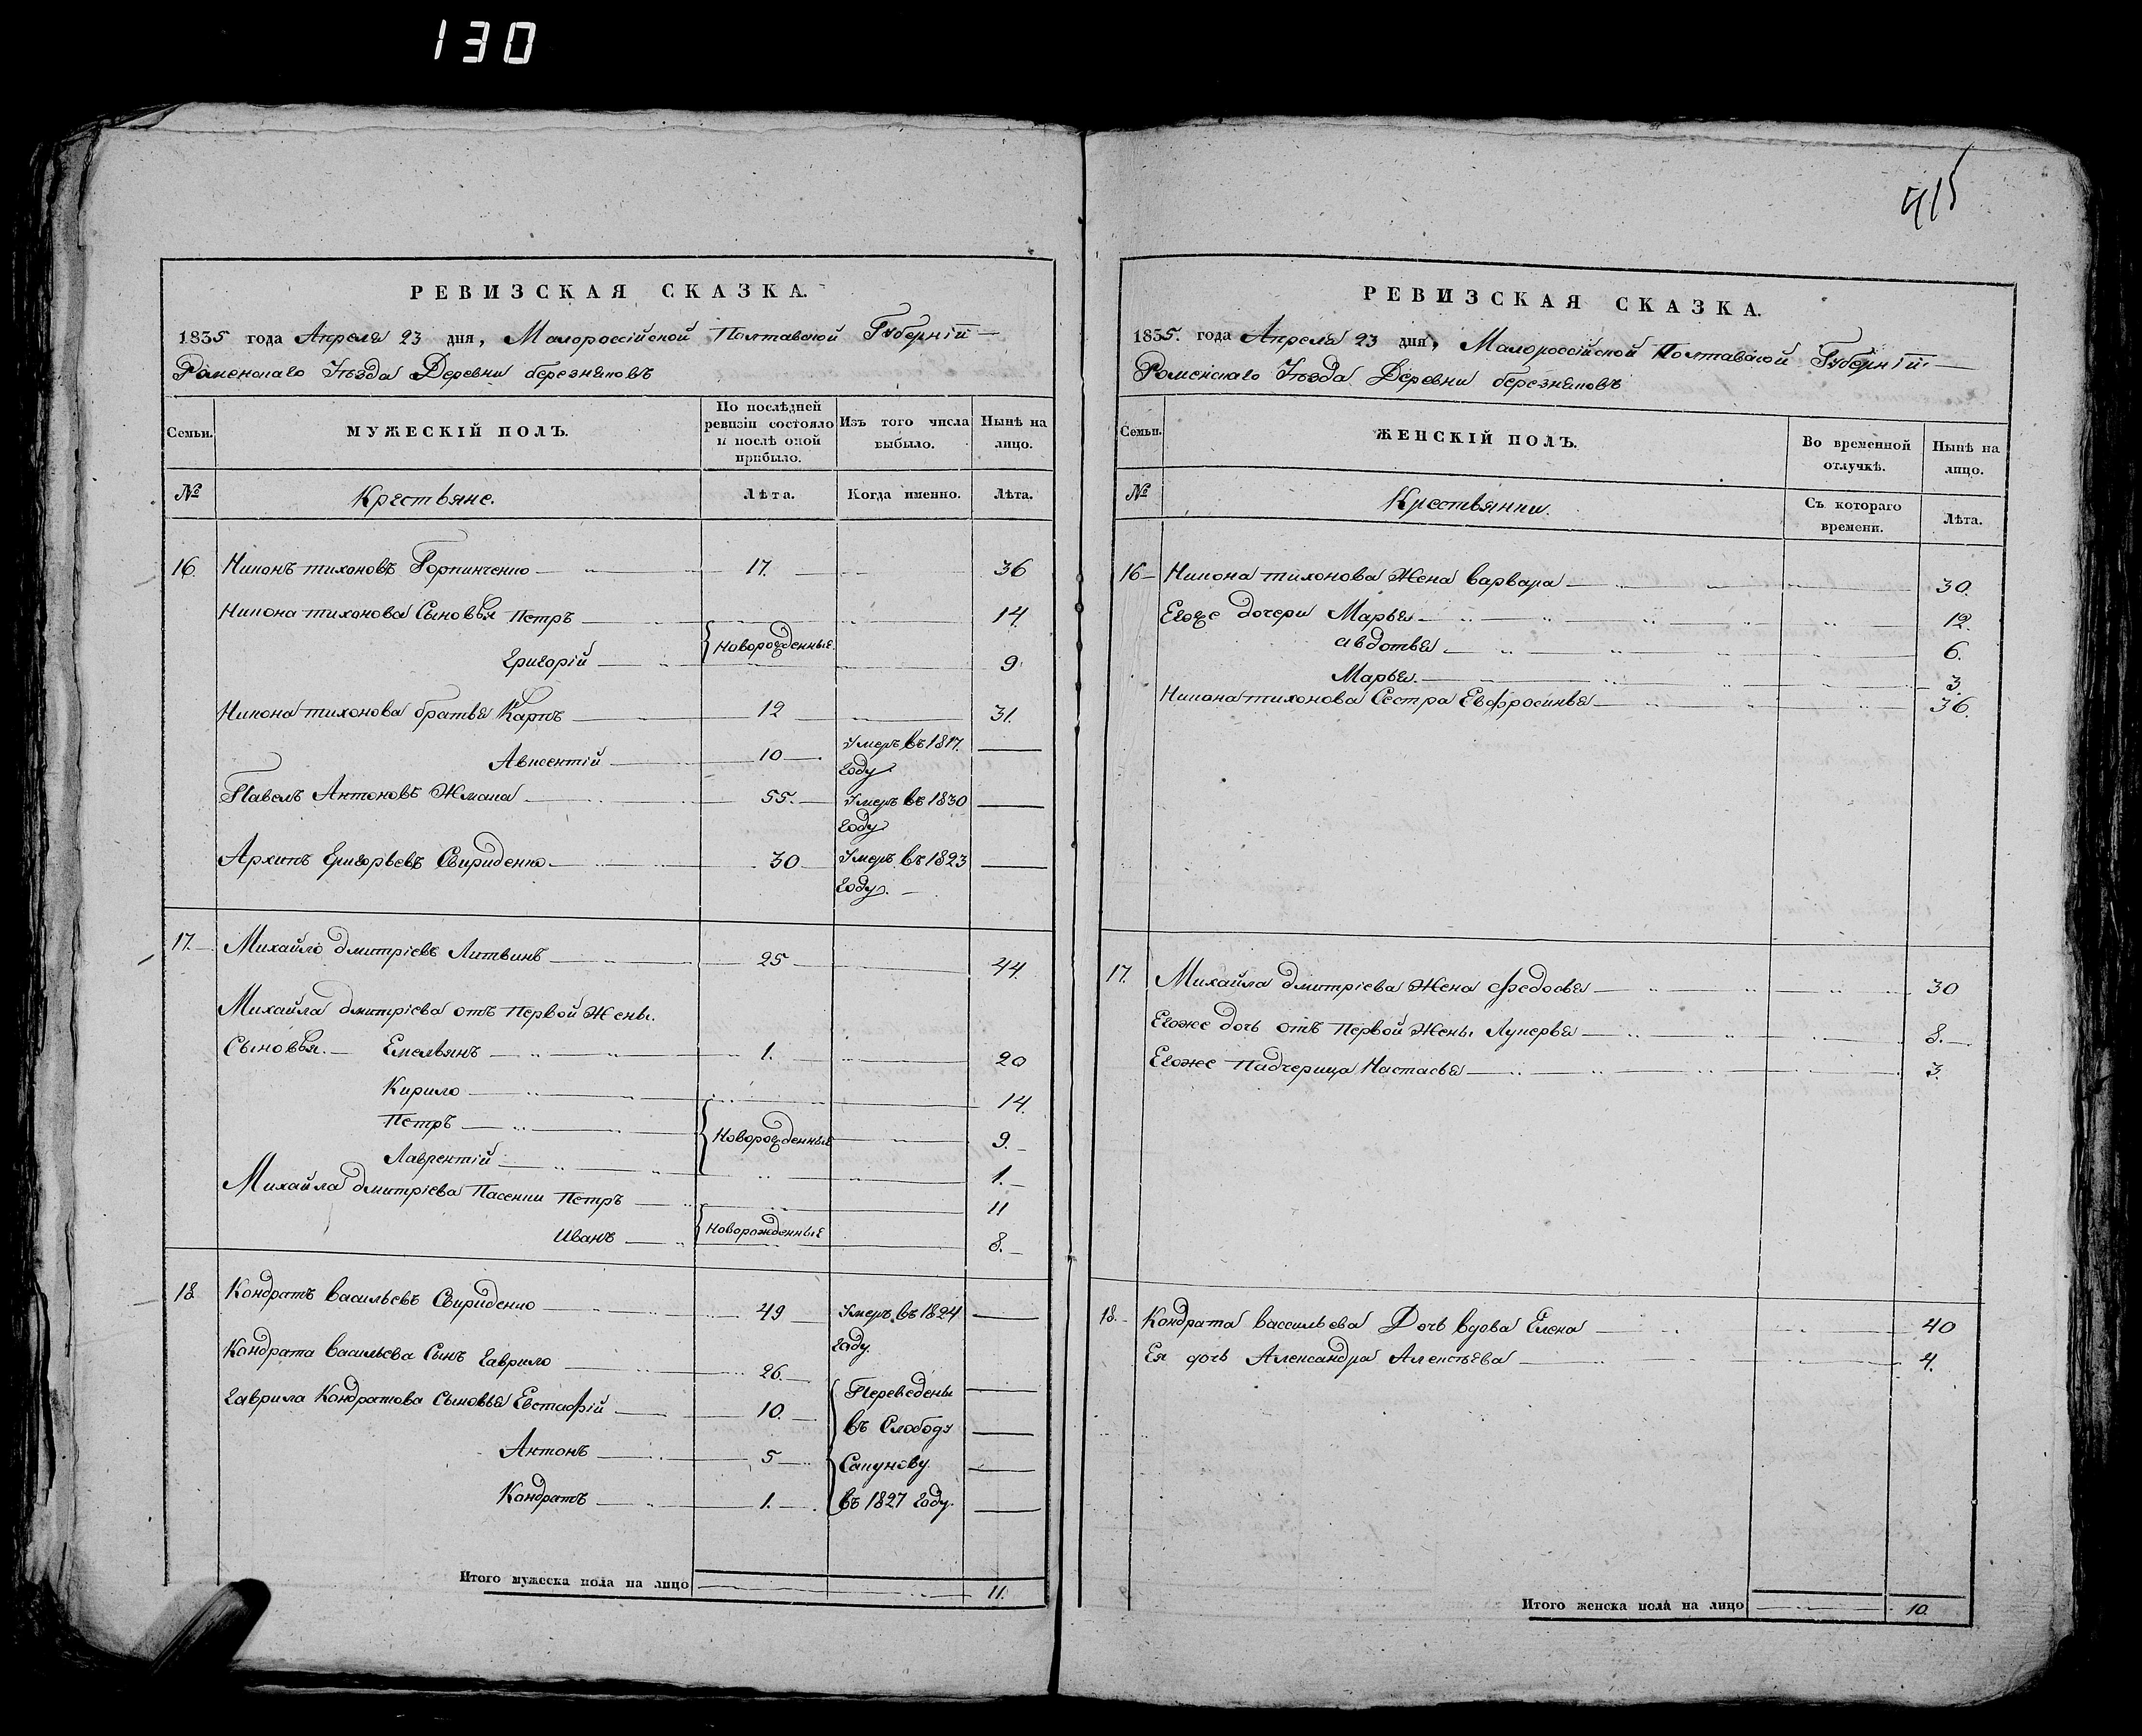 130
415
РЕВИЗСКАЯ СКАЗКА.
1835 года Апреля 23 дня, Малороссійской Полтавской Губерній
Роменскаго Уѣзда Деревни березняковъ
Семьи.
МУЖЕСКІЙ ПОЛЪ.
По послѣдней ревизіи состояло и послѣ оной прибыло.
Изъ того числа выбыло.
Нынѣ на лицо.
№
Крестьяне.
Лѣта.
Когда именно.
Лѣта.
16. Никонъ тихоновъ Горпинченко 17. 36
Никона тихонова Сыновья Петръ 14.
Новорожденные
Григорій 9
Никона тихонова братья Карпъ 12 31.
Авксентій 10 Умеръ въ 1817.
году
Павелъ Антоновъ Жмака 55. Умеръ въ 1830
году
Архипъ Григорьевъ Свириденко 30 Умеръ въ 1823
году.
17. Михайло дмитріевъ Литвинъ 25 44
Михайла дмитріева отъ Первой Жены.
Сыновья. Емельянъ 1. 20
Кирило 14.
Петръ Новорожденные 9.
Лаврентій 1.
Михайла дмитріева Пасенки Петръ 11
Иванъ Новорожденные 8.
18. Кондратъ васильевъ Свириденко 49 Умеръ въ 1824
году
Кондрата васильева Сынъ Гаврило 26.
Гаврила Кондратова Сыновья Евстафій 10. Переведены
въ Слободу
Антонъ 5 Сапунову
Кондратъ 1. въ 1827 году.
Итого мужеска пола на лицо 11.
РЕВИЗСКАЯ СКАЗКА.
1835. года Апреля 23 дня, Малороссійской Полтавской Губерній
Роменскаго Уѣзда Деревни березняковъ
Семьи.
ЖЕНСКІЙ ПОЛЪ.
Во временной отлучкѣ.
Нынѣ на лицо.
№
Крестьянки.
Съ котораго времени.
Лѣта.
16 Никона тихонова Жена варвара 30.
Егоже дочери Марья 12.
авдотья 6.
Марья. 3.
Никона тихонова Сестра Евфросинья 36.
17. Михайла дмитріева Жена Федосья 30
Егоже дочь отъ Первой Жены Лукерья 8.
Егоже Падчерица Настасья 3.
18. Кондрата вассильева Дочь вдова Елена 40
Ея дочь Александра Алексѣева 4.
Итого женска пола на лицо 10.